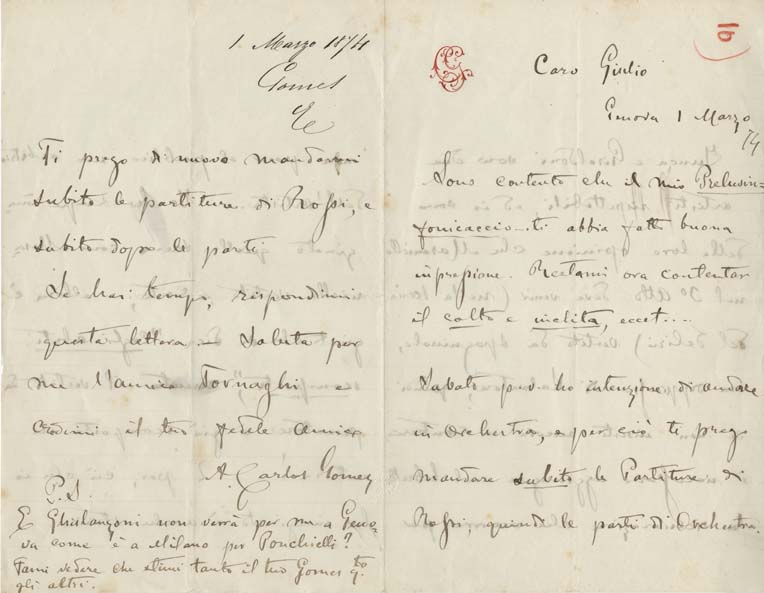 16
Caro Giulio
Genova 1 Marzo
74
Sono contento che il mio Prelusin=
fonicaccio ti abbia fatto buona
impressione. Restami ora contentar
il colto e inclita, eccet....
Sabato p.v. ho intenzione di andare
in Orchestra, e per ciò ti prego
mandare subito le Partiture di
Rossi, quindi le parti di Orchestra.
1. Marzo 1874
Gomes
Ti prego di nuovo mandarmi
subito le partiture di Rossi, e
subito dopo le parti
Se hai tempo, rispondimi
questa lettera — Saluta per
me l'amico Tornaghi e
credimi il tuo fedele amico
A. Carlos Gomes
P.S.
E Ghislanzoni non verrà per me a Geno-
va come è a Milano per Ponchielli?
Fami vedere che stimi tanto il tuo Gomes q.to
gli altri.